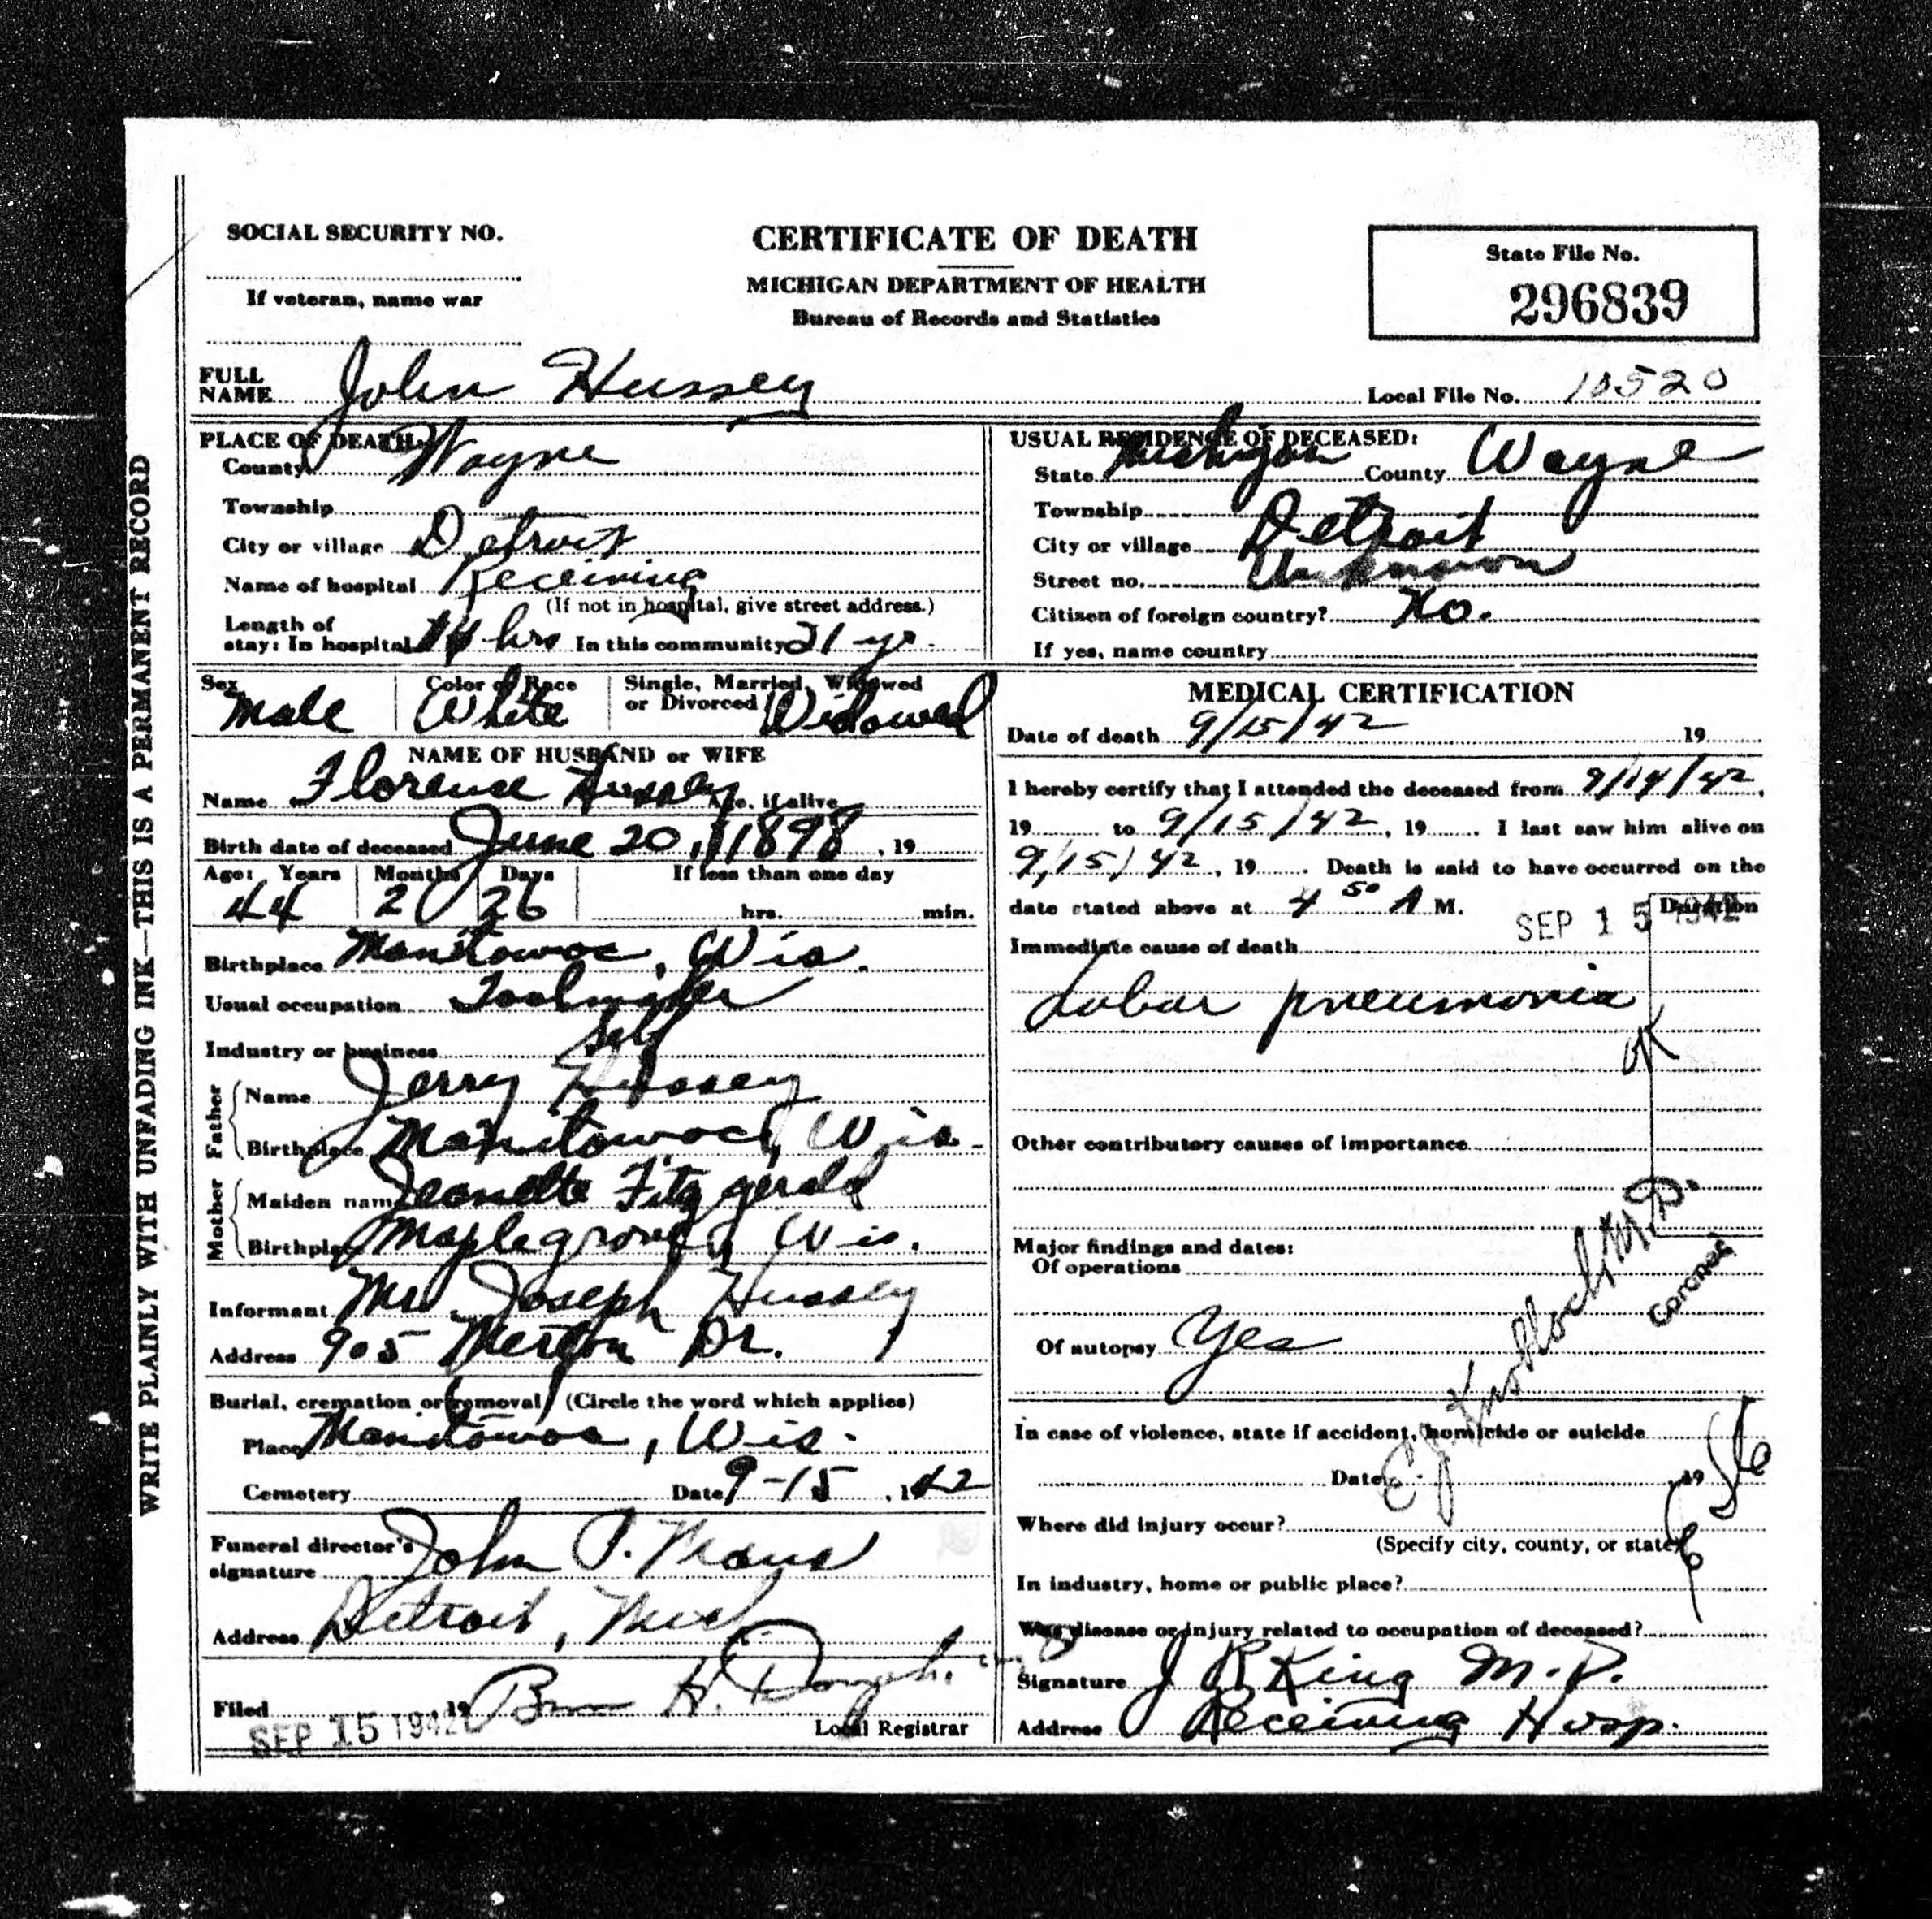 WRITE PLAINLY WITH UNFADING INK—THIS IS A PERMANENT RECORD
SOCIAL SECURITY NO.
If veteran, name war
CERTIFICATE OF DEATH
MICHIGAN DEPARTMENT OF HEALTH
Bureau of Records and Statistics
State File No.
296839
FULL NAME John Hussey
Local File No. 10520
PLACE OF DEATH:
County Wayne
Township
City or village Detroit
Name of hospital Receiving
(If not in hospital, give street address.)
Length of
stay: In hospital 14 hrs In this community 21 yr.
USUAL RESIDENCE OF DECEASED:
State Michigan County Wayne
Township
City or village Detroit
Street no. Unknown
Citizen of foreign country? No.
If yes, name country
Sex Male
Color or Race White
Single, Married, Widowed or Divorced Widowed
NAME OF HUSBAND or WIFE
Name Florence Hussey Age, if alive
Birth date of deceased June 20, 1898, 19
Age: Years Months Days If less than one day
44 2 26 hrs. min.
Birthplace Manitowoc, Wis.
Usual occupation Toolmaker
Industry or business Self
Father
Name Jerry Hussey
Birthplace Manitowoc, Wis.
Mother
Maiden name Jeanette Fitzgerald
Birthplace Maplegrove, Wis.
Informant Mr. Joseph Hussey
Address 905 Merton Dr.
Burial, cremation or removal (Circle the word which applies)
Place Manitowoc, Wis.
Cemetery Date 9-15, 1942
Funeral director's
signature John P.
Address Detroit, Mich.
Filed SEP 15 1942 19 H.
Local Registrar
MEDICAL CERTIFICATION
Date of death 9/15/42 19
I hereby certify that I attended the deceased from 9/14/42,
19 to 9/15/42, 19. I last saw him alive on
9/15/42, 19. Death is said to have occurred on the
date stated above at 4 50 A M.
SEP 15 1942
Duration
Immediate cause of death
Lobar pneumonia
OK
Other contributory causes of importance
Major findings and dates:
Of operations
Of autopsy Yes
E.J. Knobloch M.D.
Coroner
In case of violence, state if accident, homicide or suicide
Date 19
Where did injury occur?
(Specify city, county, or state)
In industry, home or public place?
Was disease or injury related to occupation of deceased?
Signature J R King M.D.
Address Receiving Hosp.